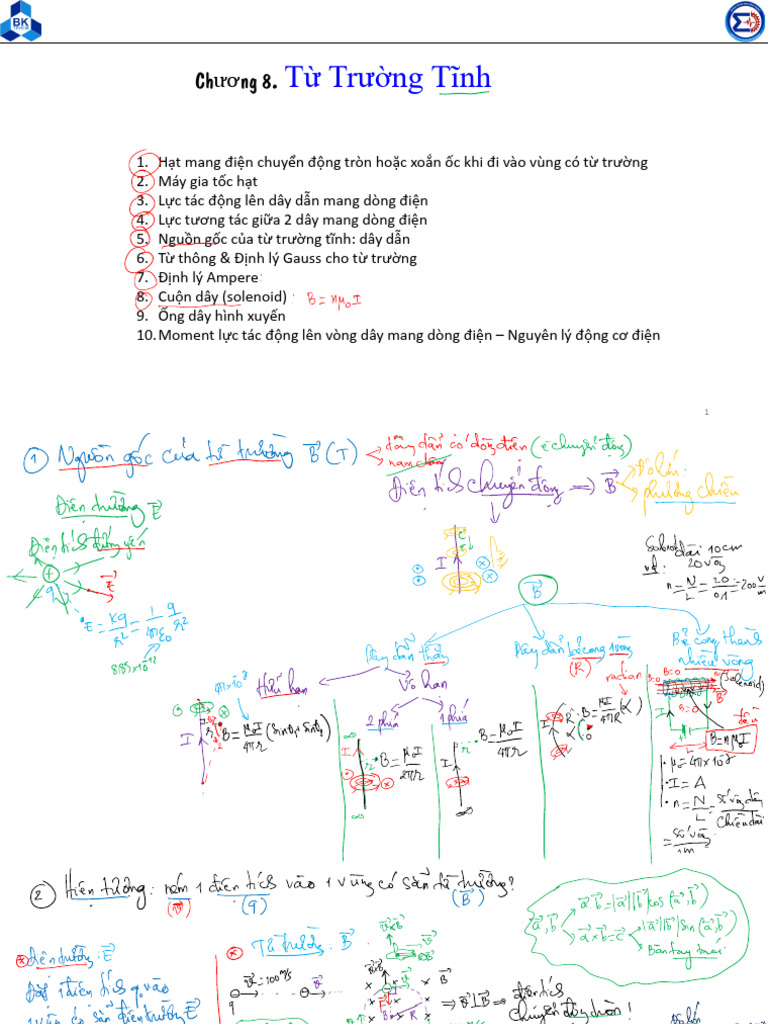 BK
TPHCM
Chương 8. Từ Trường Tĩnh
1. Hạt mang điện chuyển động tròn hoặc xoắn ốc khi đi vào vùng có từ trường
2. Máy gia tốc hạt
3. Lực tác động lên dây dẫn mang dòng điện
4. Lực tương tác giữa 2 dây mang dòng điện
5. Nguồn gốc của từ trường tĩnh: dây dẫn
6. Từ thông & Định lý Gauss cho từ trường
7. Định lý Ampere
8. Cuộn dây (solenoid) B = nμ₀I
9. Ống dây hình xuyến
10. Moment lực tác động lên vòng dây mang dòng điện – Nguyên lý động cơ điện
1
① Nguồn gốc của từ trường B⃗ (T)
dây dẫn có dòng điện (e chuyển động)
nam châm
Điện tích chuyển động ⇒ B⃗
Độ lớn
phương chiều
Điện trường E⃗
Điện tích đứng yên
E⃗
E = kq/r² = 1/4πε₀ q/r²
8.85×10⁻¹²
I
Solenoid dài 10cm
vd: 20 vòng
n = N/L = 20/0.1 = 200 v/m
B⃗
Dây dẫn thẳng
Dây dẫn bẻ cong 1 vòng
(R)
Bẻ cong thành
nhiều vòng
(Solenoid)
Hữu hạn
Vô hạn
radian
2 phía
1 phía
B = μ₀I/4πr (sinθ₁ + sinθ₂)
B = μ₀I/2πr
B = μ₀I/4πr
B = μI/4πR (α)
B=0
B = nμ₀I
I = A
n = N/L = số vòng dây/Chiều dài
= số vòng/1m
② Hiện tượng: ném 1 điện tích vào 1 vùng có sẵn từ trường?
(v⃗) (q) (B⃗)
a⃗, b⃗
a⃗.b⃗ = |a⃗||b⃗|cos(a⃗,b⃗)
a⃗×b⃗ = c⃗
|a⃗||b⃗|sin(a⃗,b⃗)
Bàn tay phải
điện trường: E⃗
Từ trường: B⃗
v⃗×B⃗
v⃗ = 100m/s
v⃗
q
B⃗
R
⇒ v⃗ ⊥ B⃗ ⇒ điện tích
chuyển động tròn!